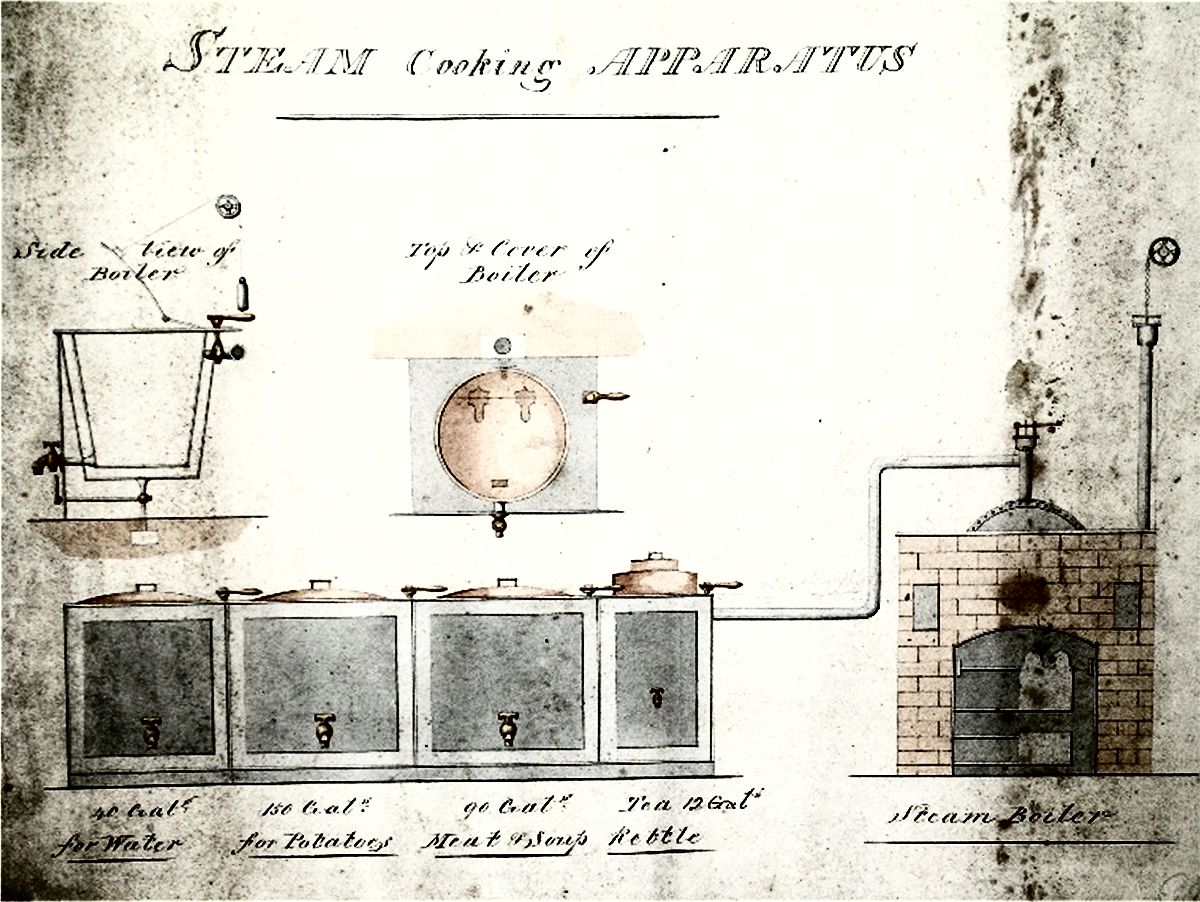 STEAM Cooking APPARATUS
Side View of
Boiler
Top & Cover of
Boiler
40 Galˢ
for Water
150 Galˢ
for Potatoes
90 Galˢ
Meat & Soup
Tea 12 Galˢ
Kettle
Steam Boiler